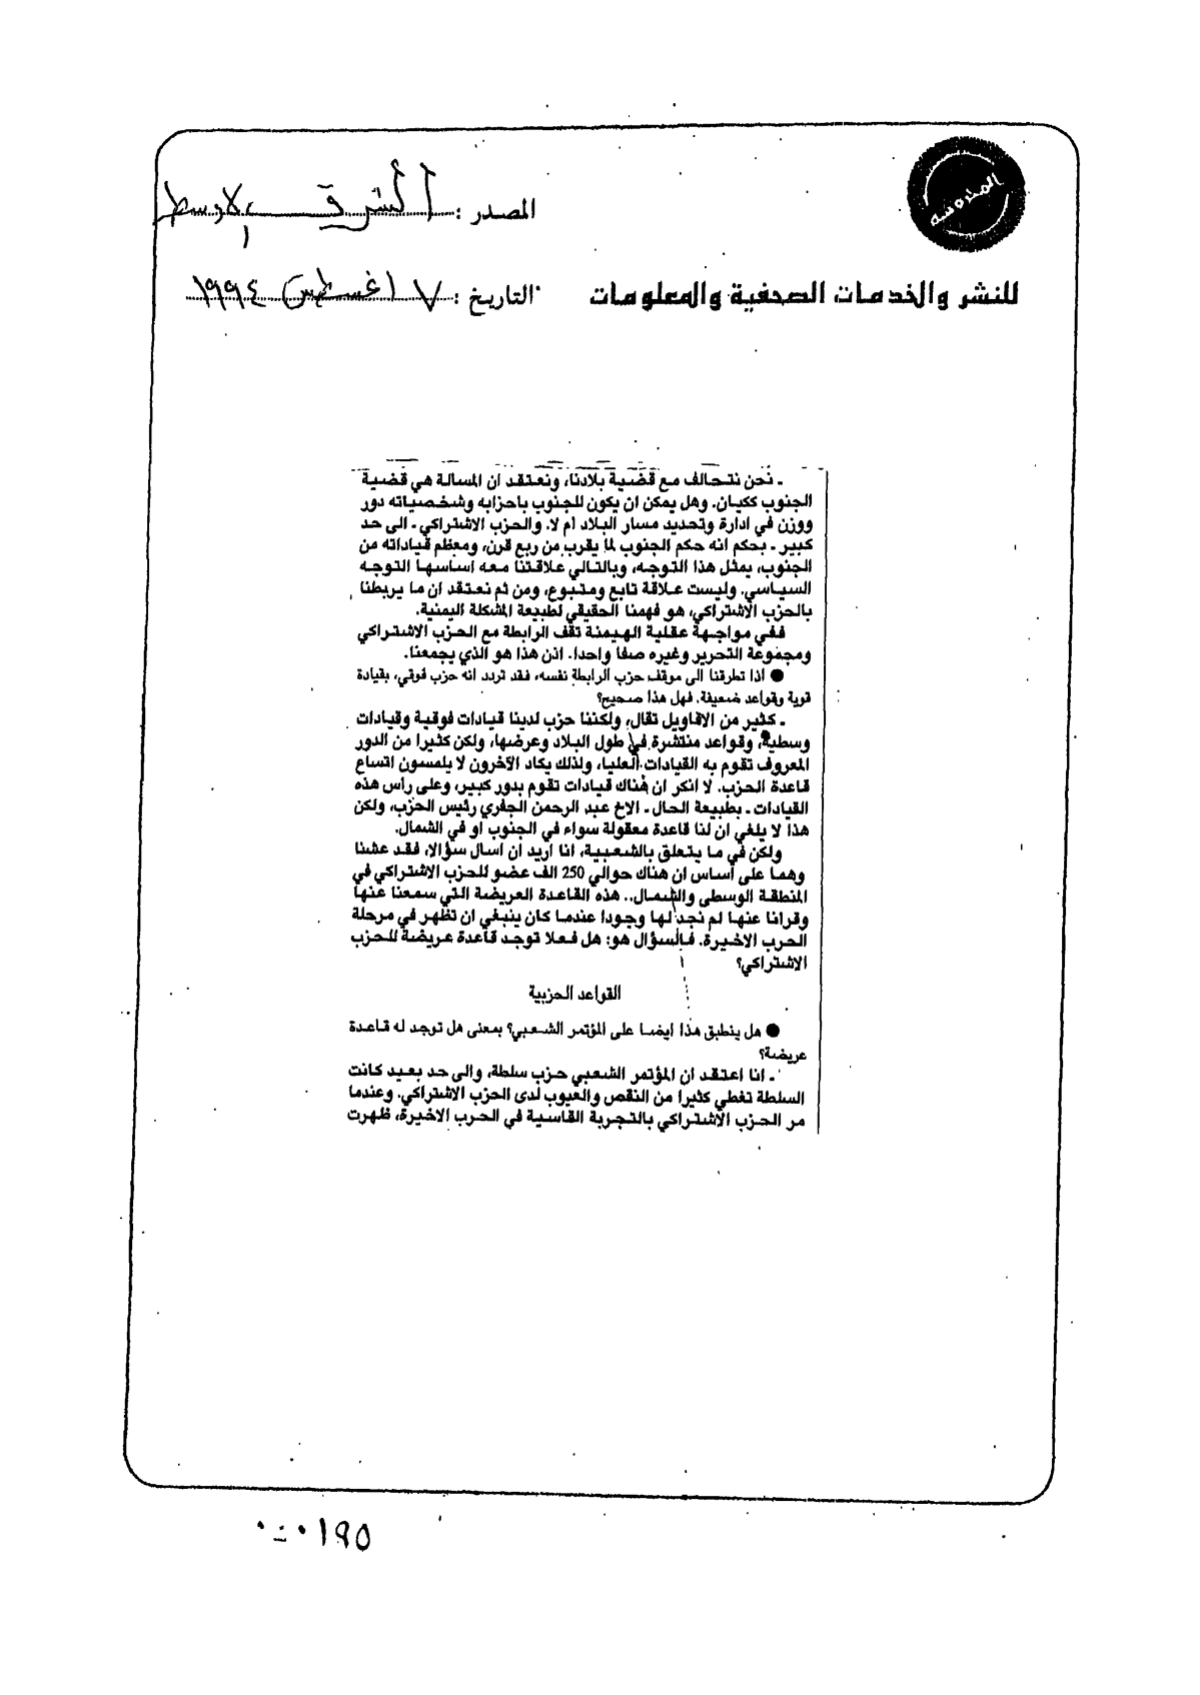 المصدر : الشرق الاوسط
للنشر والخدمات الصحفية والمعلومات
التاريخ : ٧ اغسطس ١٩٩٤
ـ نحن نتحالف مع قضية بلادنا، ونعتقد ان المسالة هي قضية
الجنوب ككيان. وهل يمكن ان يكون للجنوب باحزابه وشخصياته دور
ووزن في ادارة وتحديد مسار البلاد ام لا. والحزب الاشتراكي ـ الى حد
كبير ـ بحكم انه حكم الجنوب لما يقرب من ربع قرن، ومعظم قياداته من
الجنوب، يمثل هذا التوجه، وبالتالي علاقتنا معه اساسها التوجه
السياسي. وليست علاقة تابع ومتبوع، ومن ثم نعتقد ان ما يربطنا
بالحزب الاشتراكي، هو فهمنا الحقيقي لطبيعة المشكلة اليمنية.
ففي مواجهة عقلية الهيمنة تقف الرابطة مع الحزب الاشتراكي
ومجموعة التحرير وغيره صفا واحدا. اذن هذا هو الذي يجمعنا.
● اذا تطرقنا الى موقف حزب الرابطة نفسه، فقد تردد انه حزب فوقي، بقيادة
قوية وقواعد ضعيفة. فهل هذا صحيح؟
ـ كثير من الاقاويل تقال، ولكننا حزب لدينا قيادات فوقية وقيادات
وسطية، وقواعد منتشرة في طول البلاد وعرضها، ولكن كثيرا من الدور
المعروف تقوم به القيادات العليا، ولذلك يكاد الآخرون لا يلمسون اتساع
قاعدة الحزب. لا انكر ان هناك قيادات تقوم بدور كبير، وعلى راس هذه
القيادات ـ بطبيعة الحال ـ الاخ عبد الرحمن الجفري رئيس الحزب، ولكن
هذا لا يلغي ان لنا قاعدة معقولة سواء في الجنوب او في الشمال.
ولكن في ما يتعلق بالشعبية، انا اريد ان اسال سؤالا، فقد عشنا
وهما على اساس ان هناك حوالي 250 الف عضو للحزب الاشتراكي في
المنطقة الوسطى والشمال.. هذه القاعدة العريضة التي سمعنا عنها
وقرانا عنها لم نجد لها وجودا عندما كان ينبغي ان تظهر في مرحلة
الحرب الاخيرة. فالسؤال هو: هل فعلا توجد قاعدة عريضة للحزب
الاشتراكي؟
القواعد الحزبية
● هل ينطبق هذا ايضا على المؤتمر الشعبي؟ بمعنى هل توجد له قاعدة
عريضة؟
ـ انا اعتقد ان المؤتمر الشعبي حزب سلطة، والى حد بعيد كانت
السلطة تغطي كثيرا من النقص والعيوب لدى الحزب الاشتراكي. وعندما
مر الحزب الاشتراكي بالتجربة القاسية في الحرب الاخيرة، ظهرت